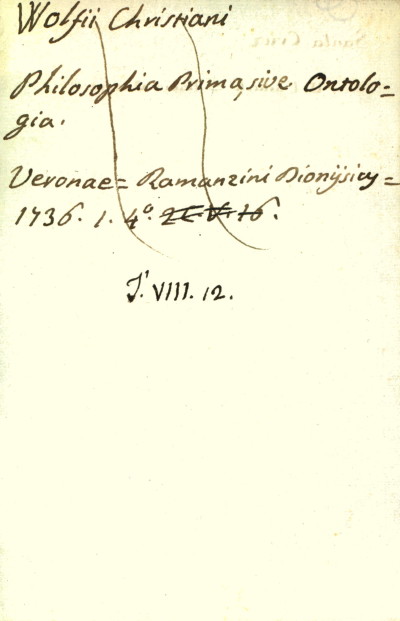 Wolfii Christiani
Philosophia Prima, sive Ontolo=
gia.
Veronae= Ramanzini Dionÿsiy=
1736. 1. 4º. 2C.V. 16.
J. VIII. 12.